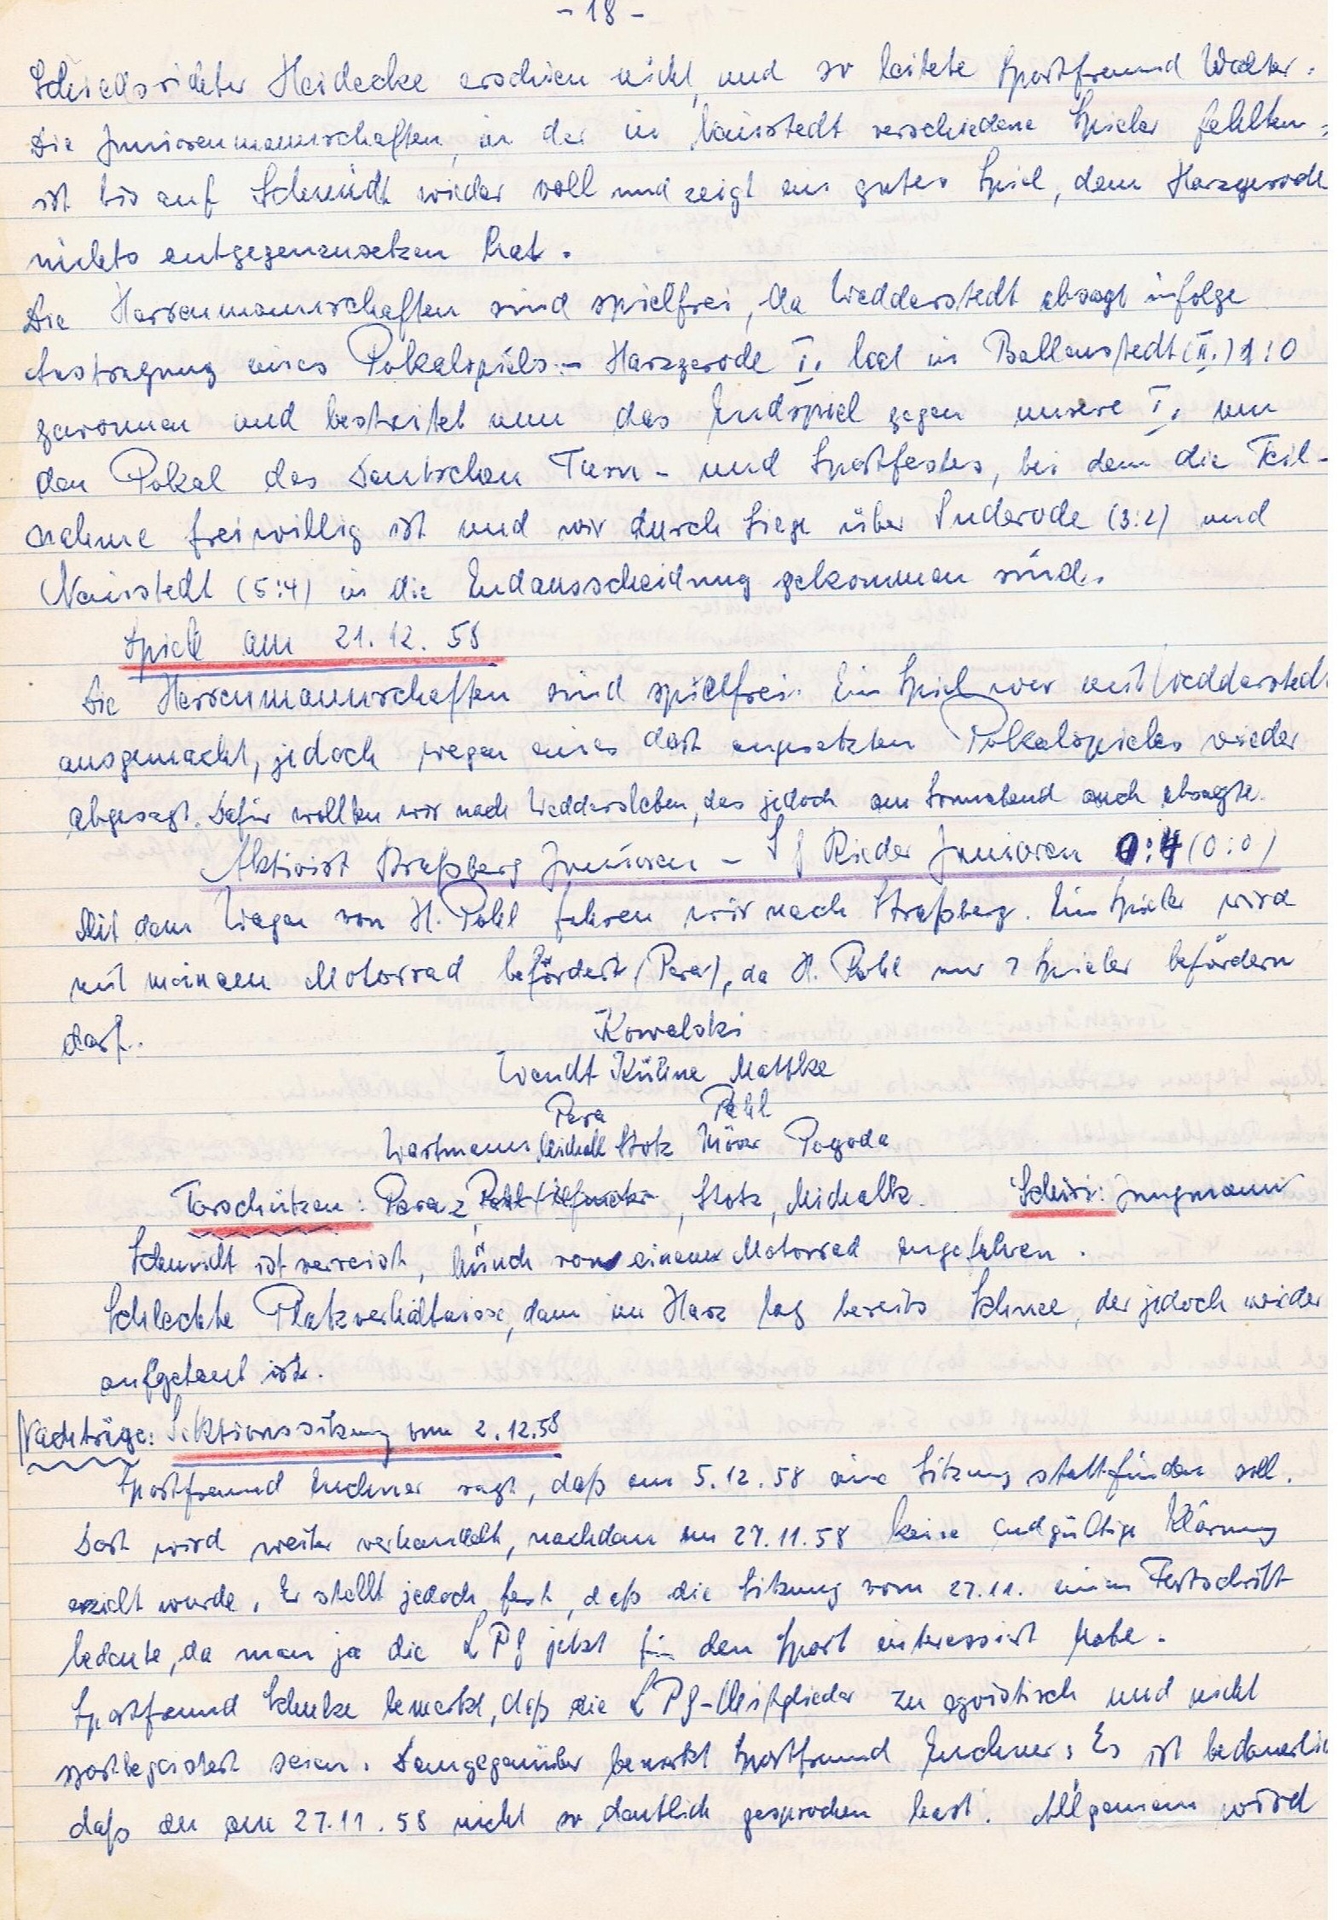 - 18 -
Schiedsrichter Heidecke erschien nicht, und so leitete Sportfreund Walter.
Die Juniorenmannschaften, in der in Neinstedt verschiedene Spieler fehlten,
ist bis auf Schmidt wieder voll und zeigt ein gutes Spiel, dem Harzgerode
nichts entgegenzusetzen hat.
Die Herrenmannschaften sind spielfrei, da Wedderstedt absagt infolge
Austragung eines Pokalspiels. - Harzgerode I. hat in Ballenstedt (II.) 1:0
gewonnen und bestreitet nun das Endspiel gegen unsere I. um
den Pokal des Deutschen Turn- und Sportfestes, bei dem die Teil-
nahme freiwillig ist und wir durch Siege über Suderode (3:2) und
Neinstedt (5:4) in die Endausscheidung gekommen sind.
Spiele am 21.12.58
Die Herrenmannschaften sind spielfrei. Ein Spiel war mit Wedderstedt
ausgemacht, jedoch wegen eines dort angesetzten Pokalspieles wieder
abgesagt. Dafür wollten wir nach Weddersleben, das jedoch am Sonnabend auch absagte.
Aktivist Straßberg Junioren - SG Rieder Junioren 0:4 (0:0)
Mit dem Wagen von H. Pohl fahren wir nach Straßberg. Ein Spieler wird
mit meinem Motorrad befördert (Pera), da H. Pohl nur 7 Spieler befördern
darf.
Kowalski
Wendt Kühne Mattke
Pera Pohl
Wartmann Michalk Stotz Pogoda
Torschützen: Pera 2, Stotz, Michalk. Schiri: Jungmann
Schmidt ist verreist, Münch von einem Motorrad angefahren.
Schlechte Platzverhältnisse, denn im Harz lag bereits Schnee, der jedoch wieder
aufgetaut ist.
Nachträge: Sektionssitzung vom 2.12.58
Sportfreund Euchner sagt, daß am 5.12.58 eine Sitzung stattfinden soll.
Dort wird weiter verhandelt, nachdem am 27.11.58 keine endgültige Klärung
erzielt wurde. Er stellt jedoch fest, daß die Sitzung vom 27.11. einen Fortschritt
bedeute, da man ja die LPG jetzt für den Sport interessiert habe.
Sportfreund Schulze bemerkt, daß die LPG-Mitglieder zu egoistisch und nicht
sportbegeistert seien. Demgegenüber bemerkt Sportfreund Euchner: Es ist bedauerlich
daß er am 27.11.58 nicht so deutlich gesprochen hast. Allgemein wird